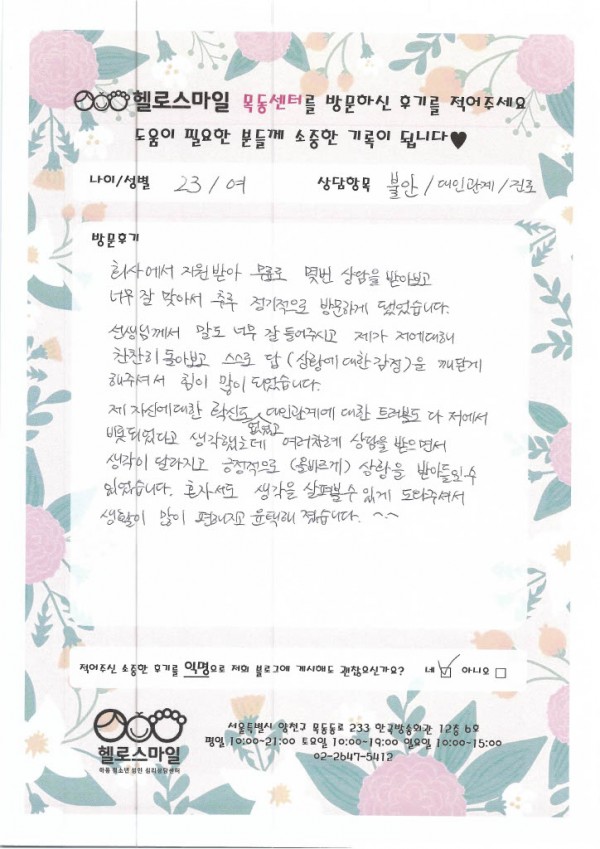 헬로스마일 목동센터를 방문하신 후기를 적어주세요
도움이 필요한 분들께 소중한 기록이 됩니다♥
나이/성별 23/여 상담항목 불안/대인관계/진로
방문후기
회사에서 지원받아 무료로 몇번 상담을 받아보고
너무 잘 맞아서 추후 정기적으로 방문하게 됐었습니다.
선생님께서 말도 너무 잘 들어주시고 제가 저에대해
찬찬히 돌아보고 스스로 답(상황에 대한 감정)을 깨닫게
해주셔서 힘이 많이 되었습니다.
제 자신에대한 확신도 없었고 대인관계에 대한 트러블도 다 저에서
비롯되었다고 생각했는데 여러차례 상담을 받으면서
생각이 달라지고 긍정적으로 (올바르게) 상황을 받아들일수
있었습니다. 혼자서도 생각을 살펴볼수 있게 도와주셔서
생활이 많이 편해지고 윤택해 졌습니다. ^^
적어주신 소중한 후기를 익명으로 저희 블로그에 게시해도 괜찮으신가요? 네 ☑ 아니요 □
헬로스마일
목동 청소년 성인 심리상담센터
서울특별시 양천구 목동동로 233 한국방송회관 12층 6호
평일 10:00~21:00 토요일 10:00~19:00 일요일 10:00~15:00
02-2647-5412